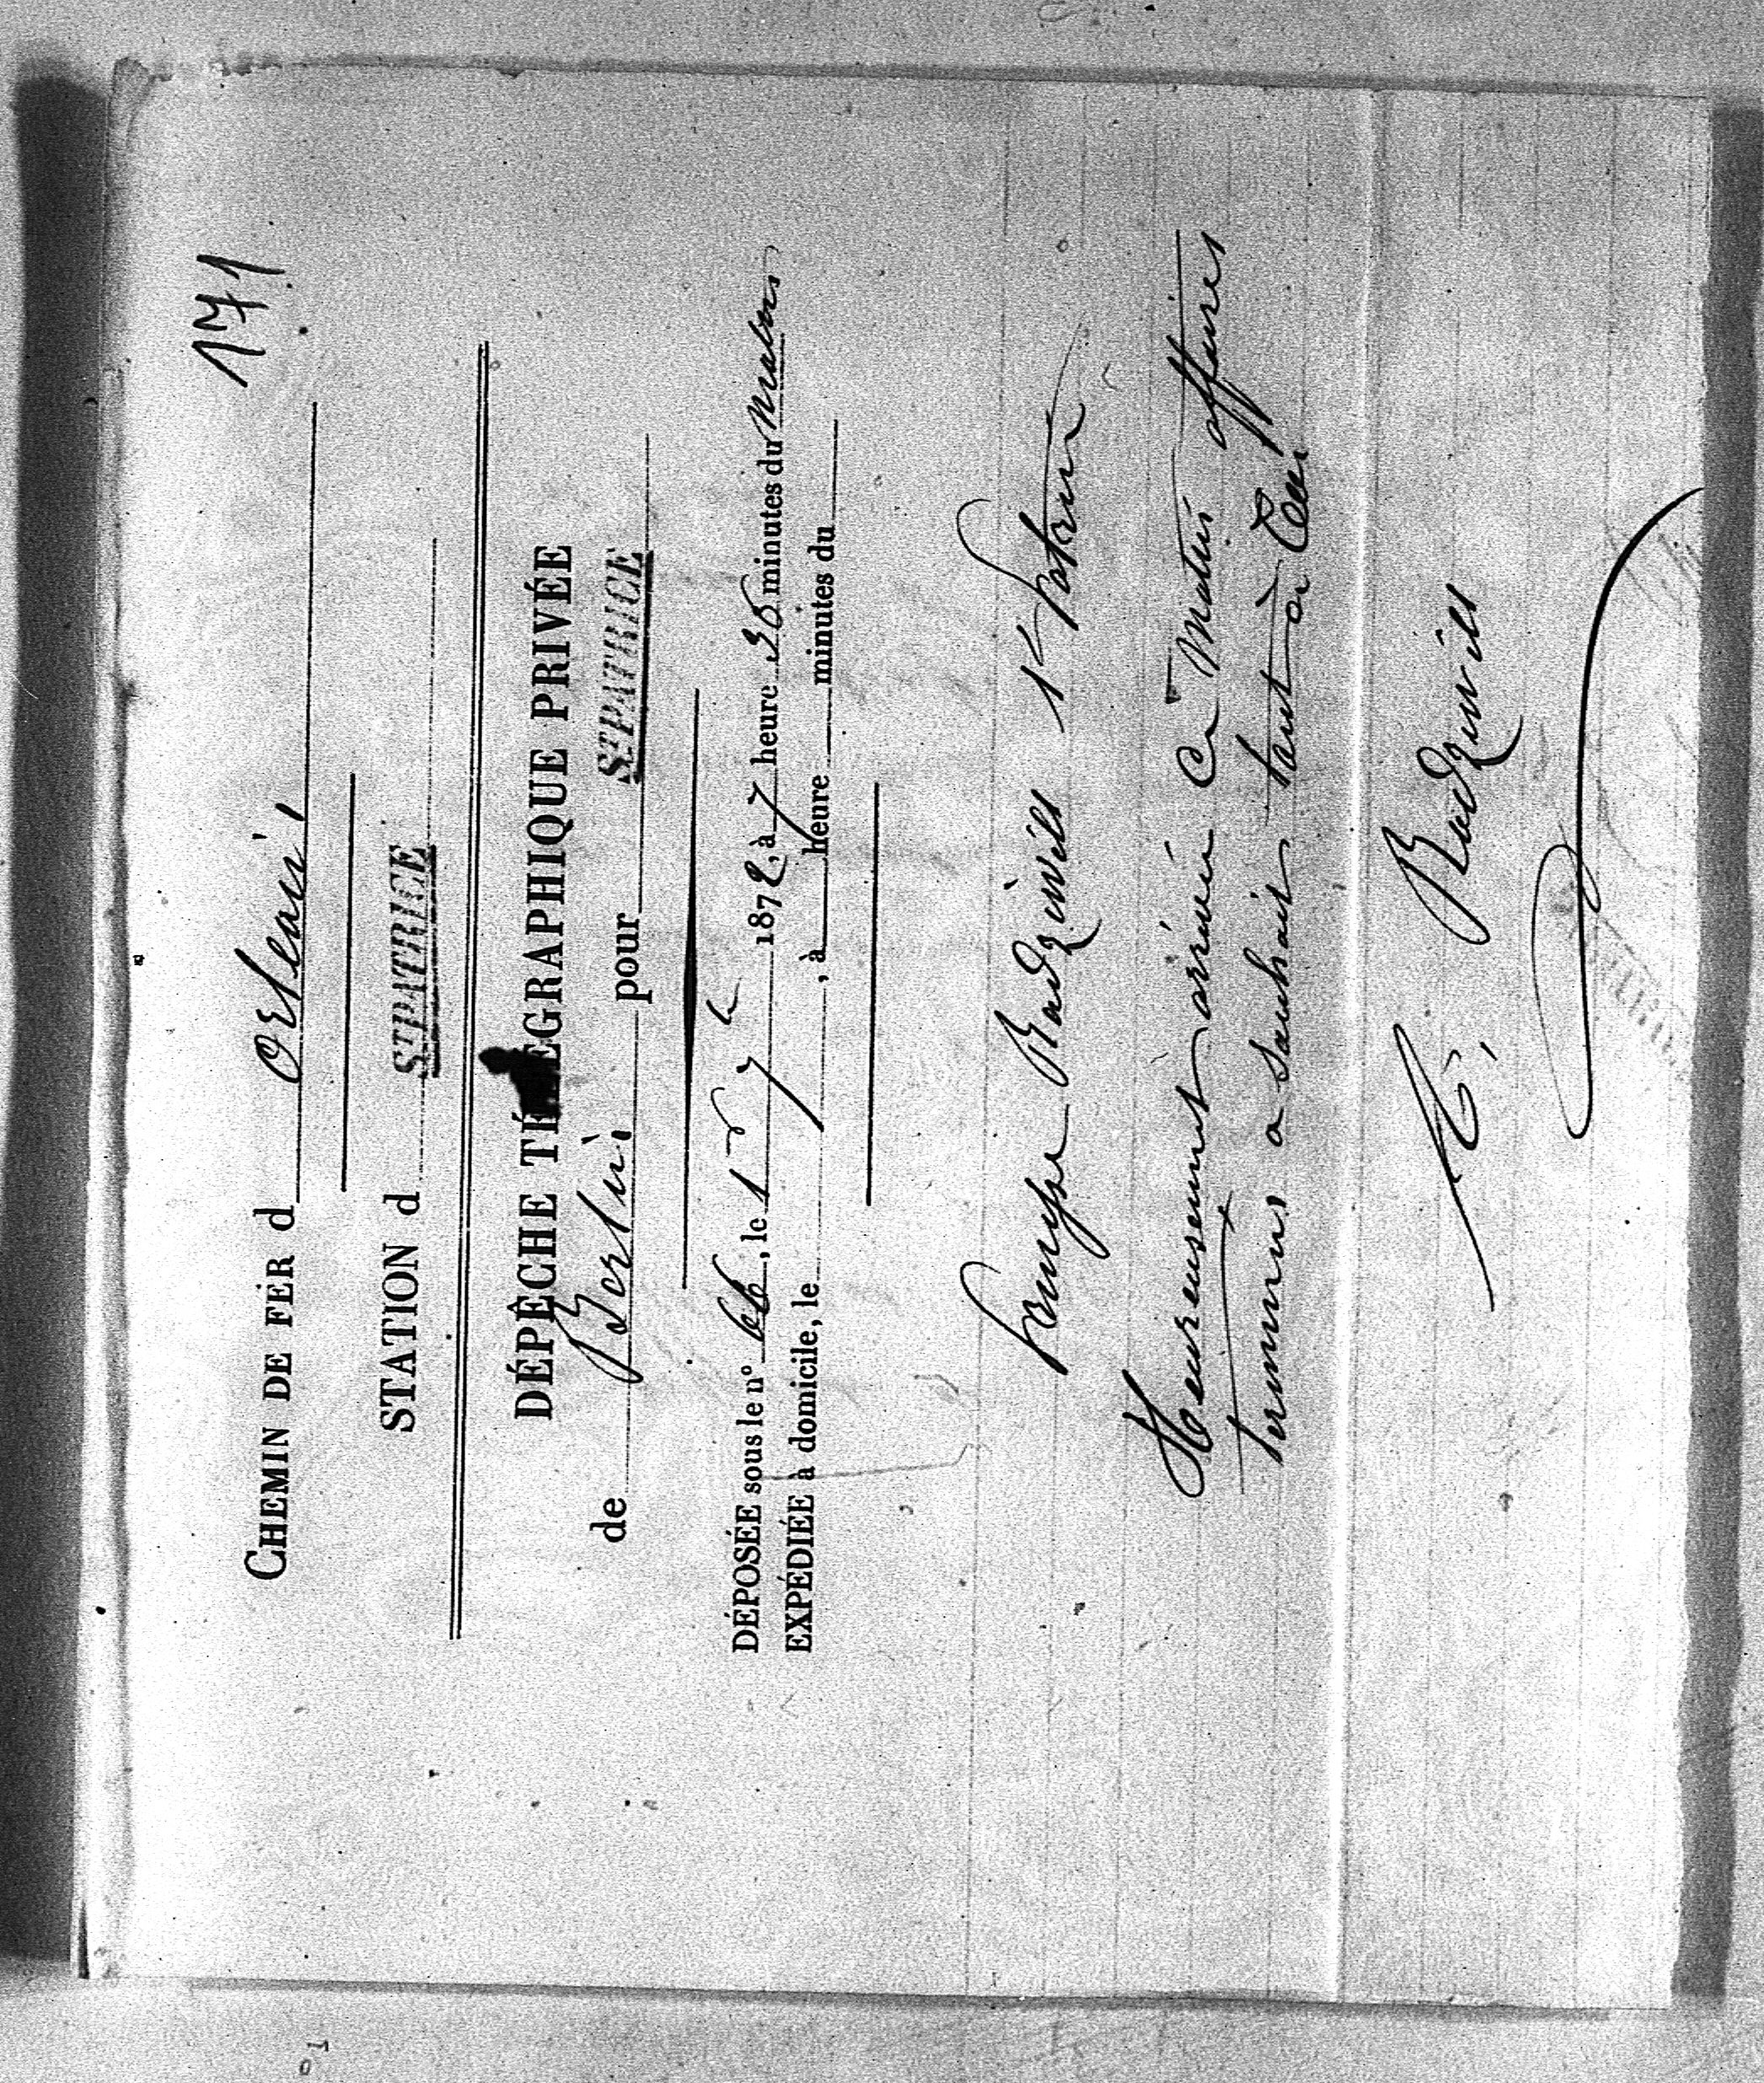 171
CHEMIN DE FER d Orléans
STATION d ST PATRICE
DÉPÊCHE TÉLÉGRAPHIQUE PRIVÉE
de Berlin pour ST PATRICE
DÉPOSÉE sous le n° 66, le 1 7 1872, à 7 heure 36 minutes du Matin
EXPÉDIÉE à domicile, le , à heure minutes du
Radziwill St Patrice
Heureusement arrivée ce Matin affaires
terminés a souhait tout à toi
Radziwill